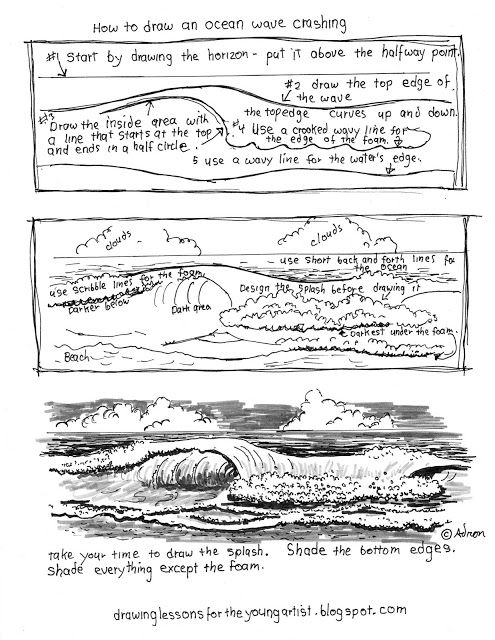 How to draw an ocean wave crashing
#1 Start by drawing the horizon - put it above the halfway point.
#2 draw the top edge of
the wave
the top edge curves up and down.
#3
Draw the inside area with
a line that starts at the top
and ends in a half circle.
#4 Use a crooked wavy line for
the edge of the foam.
5 use a wavy line for the water's edge.
clouds
clouds
use short back and forth lines for
the ocean
use scribble lines for the foam
Darker below
Dark area
Design the splash before drawing it
Darkest under the foam
Beach
© Adron
take your time to draw the splash. Shade the bottom edges.
Shade everything except the foam.
drawinglessonsfortheyoungartist.blogspot.com